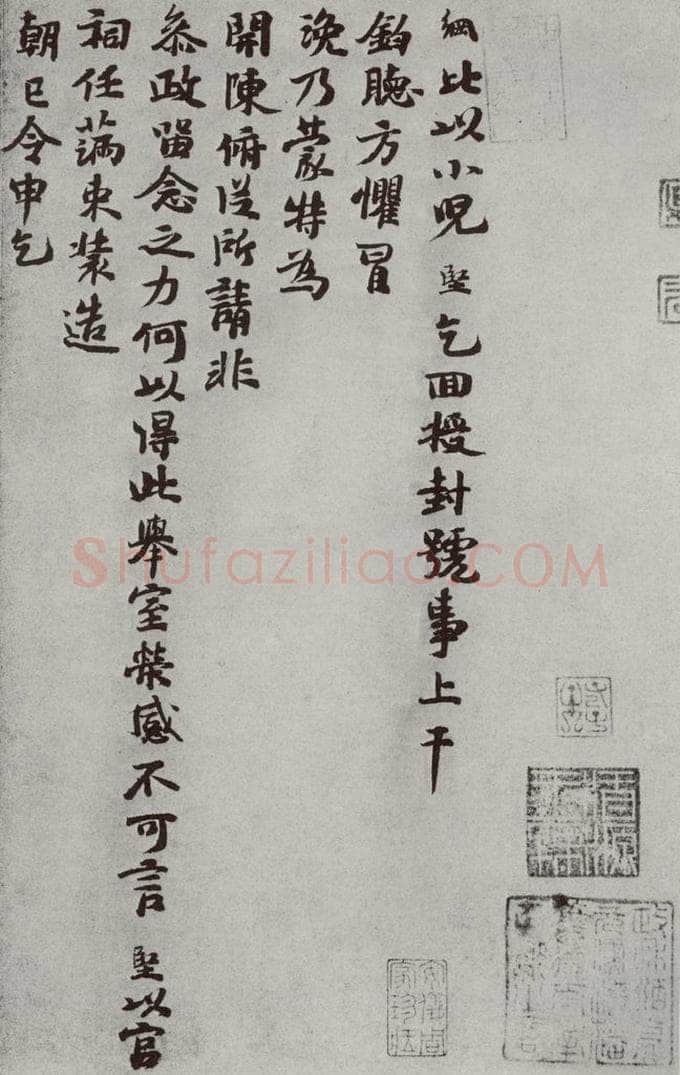 綱比以小兒堅乞回授封號事上干
鈞聽方懼冒
浼乃蒙特為
開陳俯從所請非
叅政留念之力何以得此舉室榮感不可言堅以官
祠任滿束裝造
朝已令申乞
安儀周家珍藏
Shufaziliao.COM